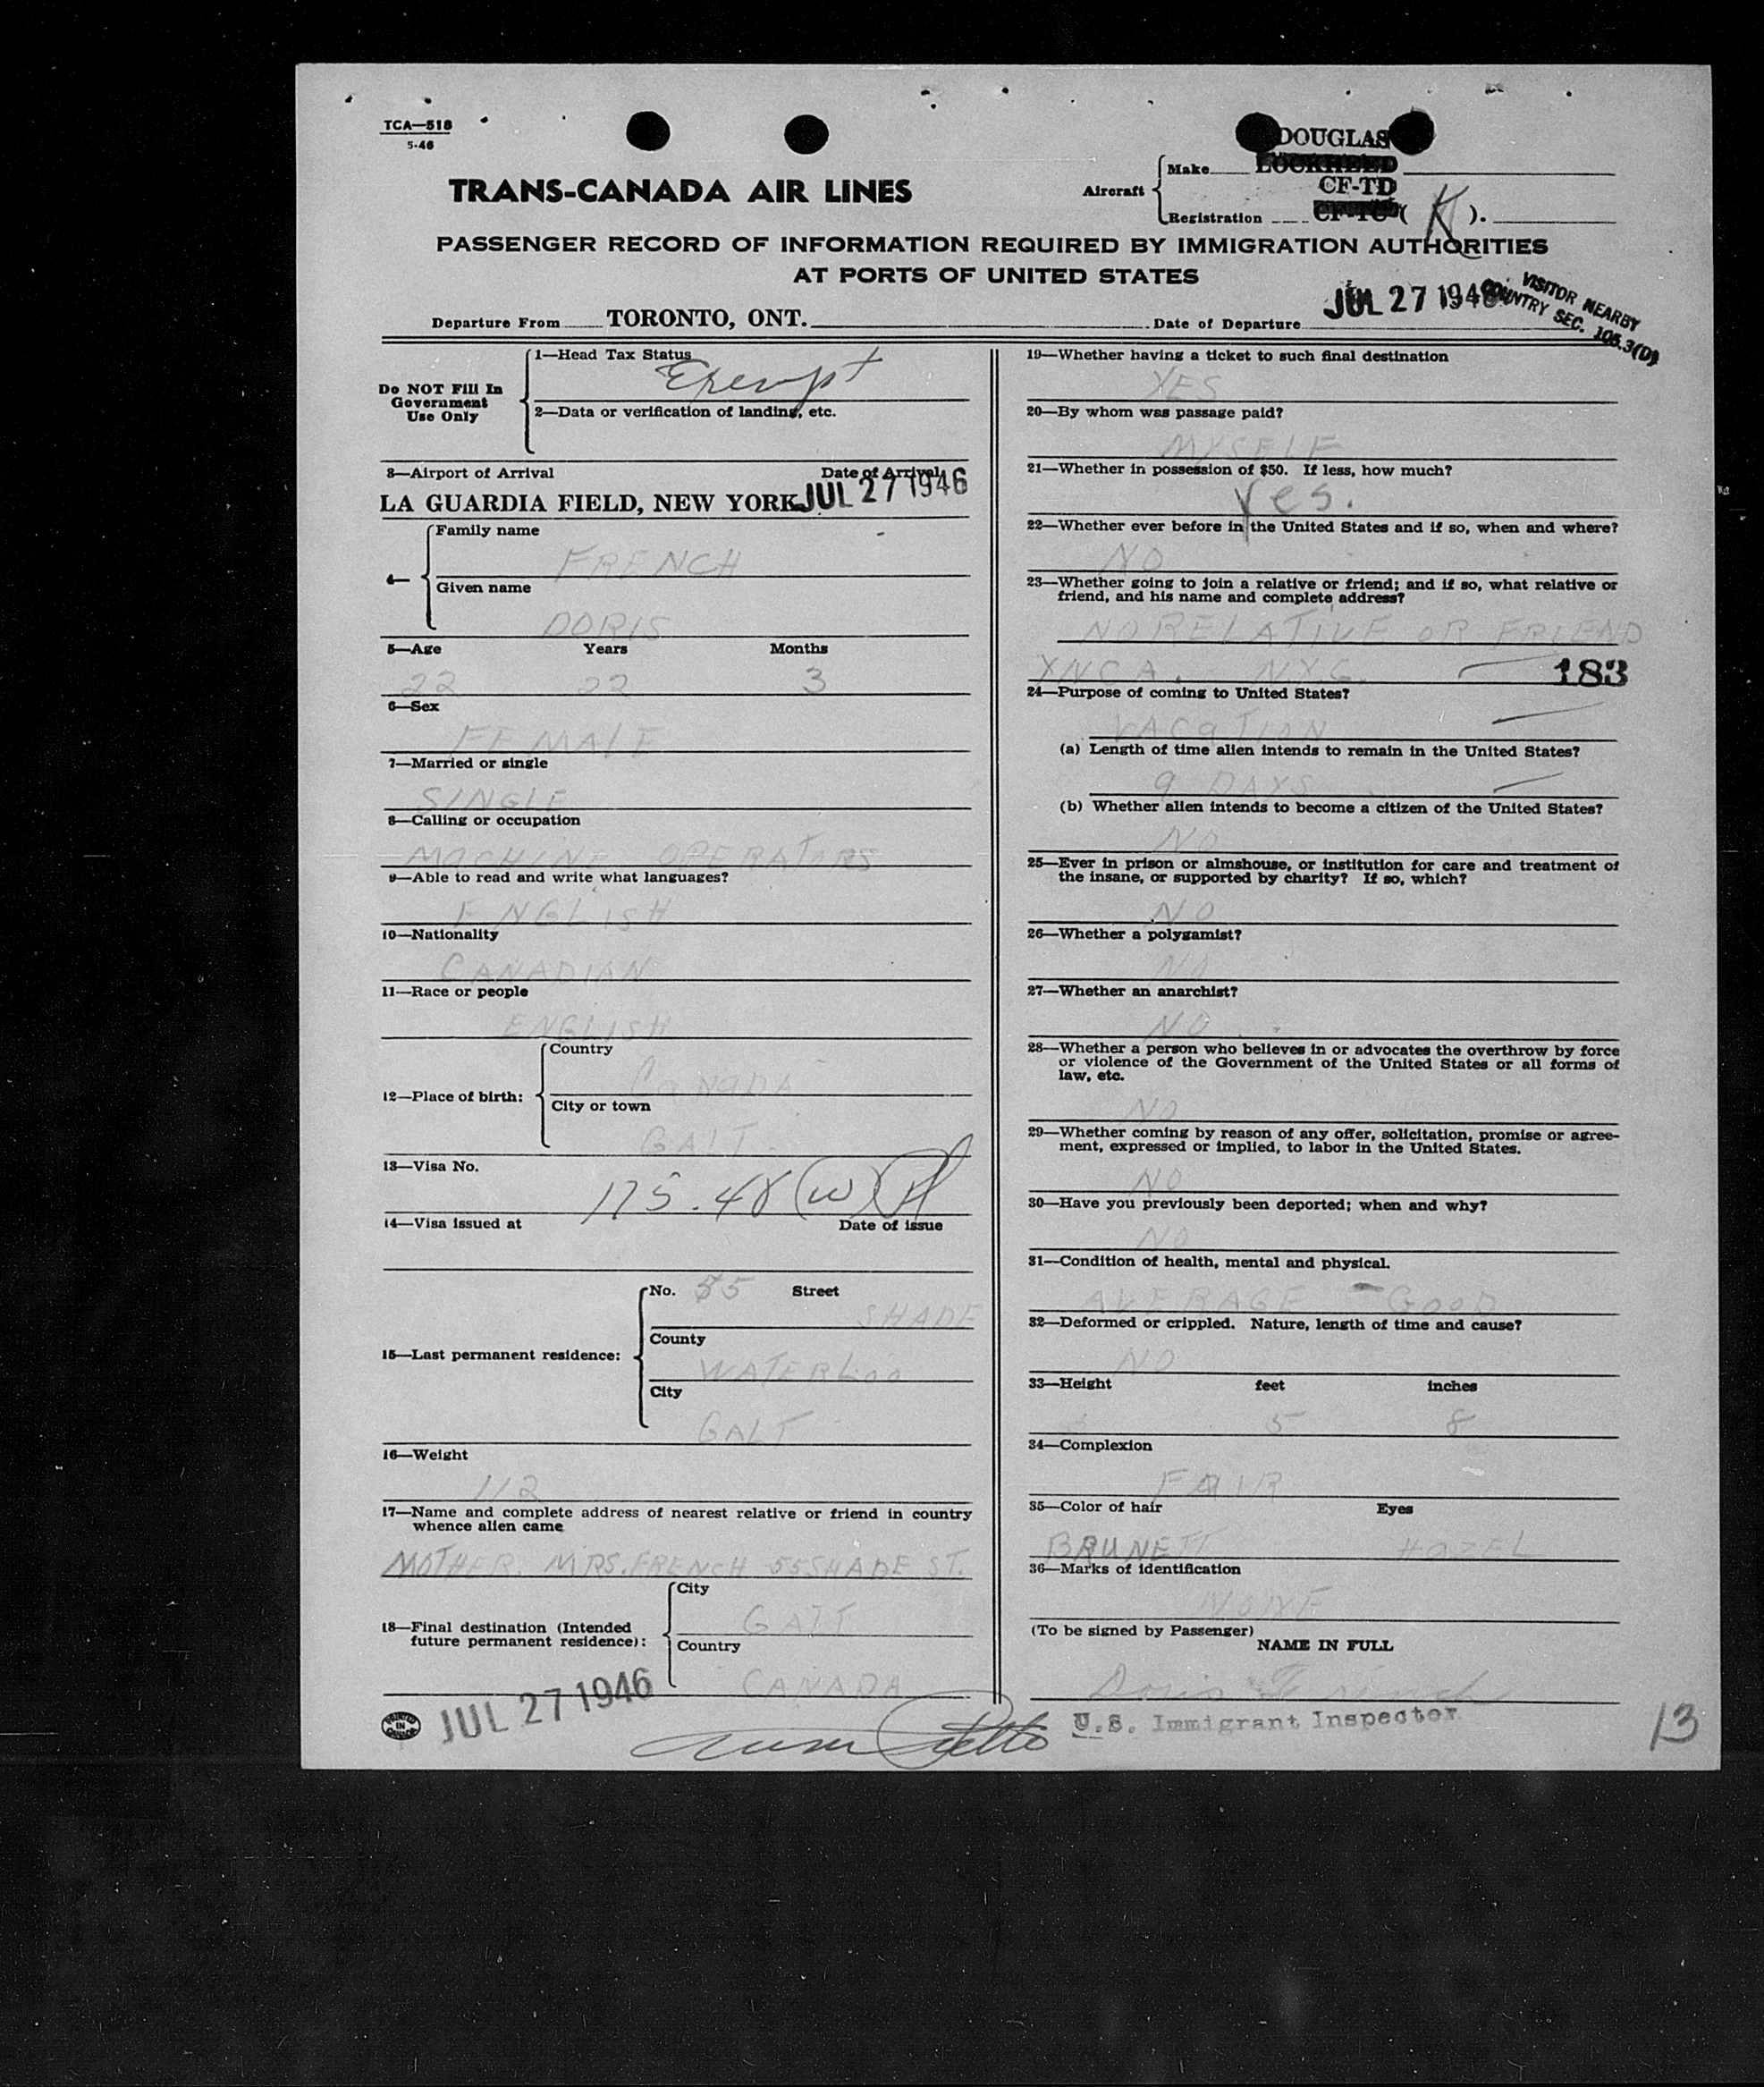 TCA—518
5-46
DOUGLAS
TRANS-CANADA AIR LINES
Aircraft
Make LOCKHEED
CF-TD
Registration CF-TC ( K ).
PASSENGER RECORD OF INFORMATION REQUIRED BY IMMIGRATION AUTHORITIES
AT PORTS OF UNITED STATES
Departure From TORONTO, ONT. Date of Departure JUL 27 1946
VISITOR NEARBY
COUNTRY SEC. 105.3(D)
Do NOT Fill In
Government
Use Only
1—Head Tax Status
Exempt
2—Data or verification of landing, etc.
3—Airport of Arrival Date of Arrival
LA GUARDIA FIELD, NEW YORK JUL 27 1946
4—
Family name
FRENCH
Given name
DORIS
5—Age Years Months
22 22 3
6—Sex
FEMALE
7—Married or single
SINGLE
8—Calling or occupation
MACHINE OPERATORS
9—Able to read and write what languages?
ENGLISH
10—Nationality
CANADIAN
11—Race or people
ENGLISH
12—Place of birth:
Country
CANADA
City or town
GALT
13—Visa No.
175.48 (W)
14—Visa issued at Date of issue
15—Last permanent residence:
No. 55 Street
SHADE
County
WATERLOO
City
GALT
16—Weight
112
17—Name and complete address of nearest relative or friend in country
whence alien came
MOTHER. MRS. FRENCH 55 SHADE ST.
18—Final destination (Intended
future permanent residence):
City
GALT
Country
CANADA
19—Whether having a ticket to such final destination
YES
20—By whom was passage paid?
MYSELF
21—Whether in possession of $50. If less, how much?
Yes.
22—Whether ever before in the United States and if so, when and where?
NO
23—Whether going to join a relative or friend; and if so, what relative or
friend, and his name and complete address?
NO RELATIVE OR FRIEND
183
24—Purpose of coming to United States?
VACATION
(a) Length of time alien intends to remain in the United States?
9 DAYS
(b) Whether alien intends to become a citizen of the United States?
NO
25—Ever in prison or almshouse, or institution for care and treatment of
the insane, or supported by charity? If so, which?
NO
26—Whether a polygamist?
NO
27—Whether an anarchist?
NO
28—Whether a person who believes in or advocates the overthrow by force
or violence of the Government of the United States or all forms of
law, etc.
NO
29—Whether coming by reason of any offer, solicitation, promise or agree-
ment, expressed or implied, to labor in the United States.
NO
30—Have you previously been deported; when and why?
NO
31—Condition of health, mental and physical.
AVERAGE - GOOD
32—Deformed or crippled. Nature, length of time and cause?
NO
33—Height feet inches
5 8
34—Complexion
FAIR
35—Color of hair Eyes
BRUNETT HAZEL
36—Marks of identification
NONE
(To be signed by Passenger)
NAME IN FULL
Doris French
PRINTED IN CANADA
JUL 27 1946
U.S. Immigrant Inspector
13